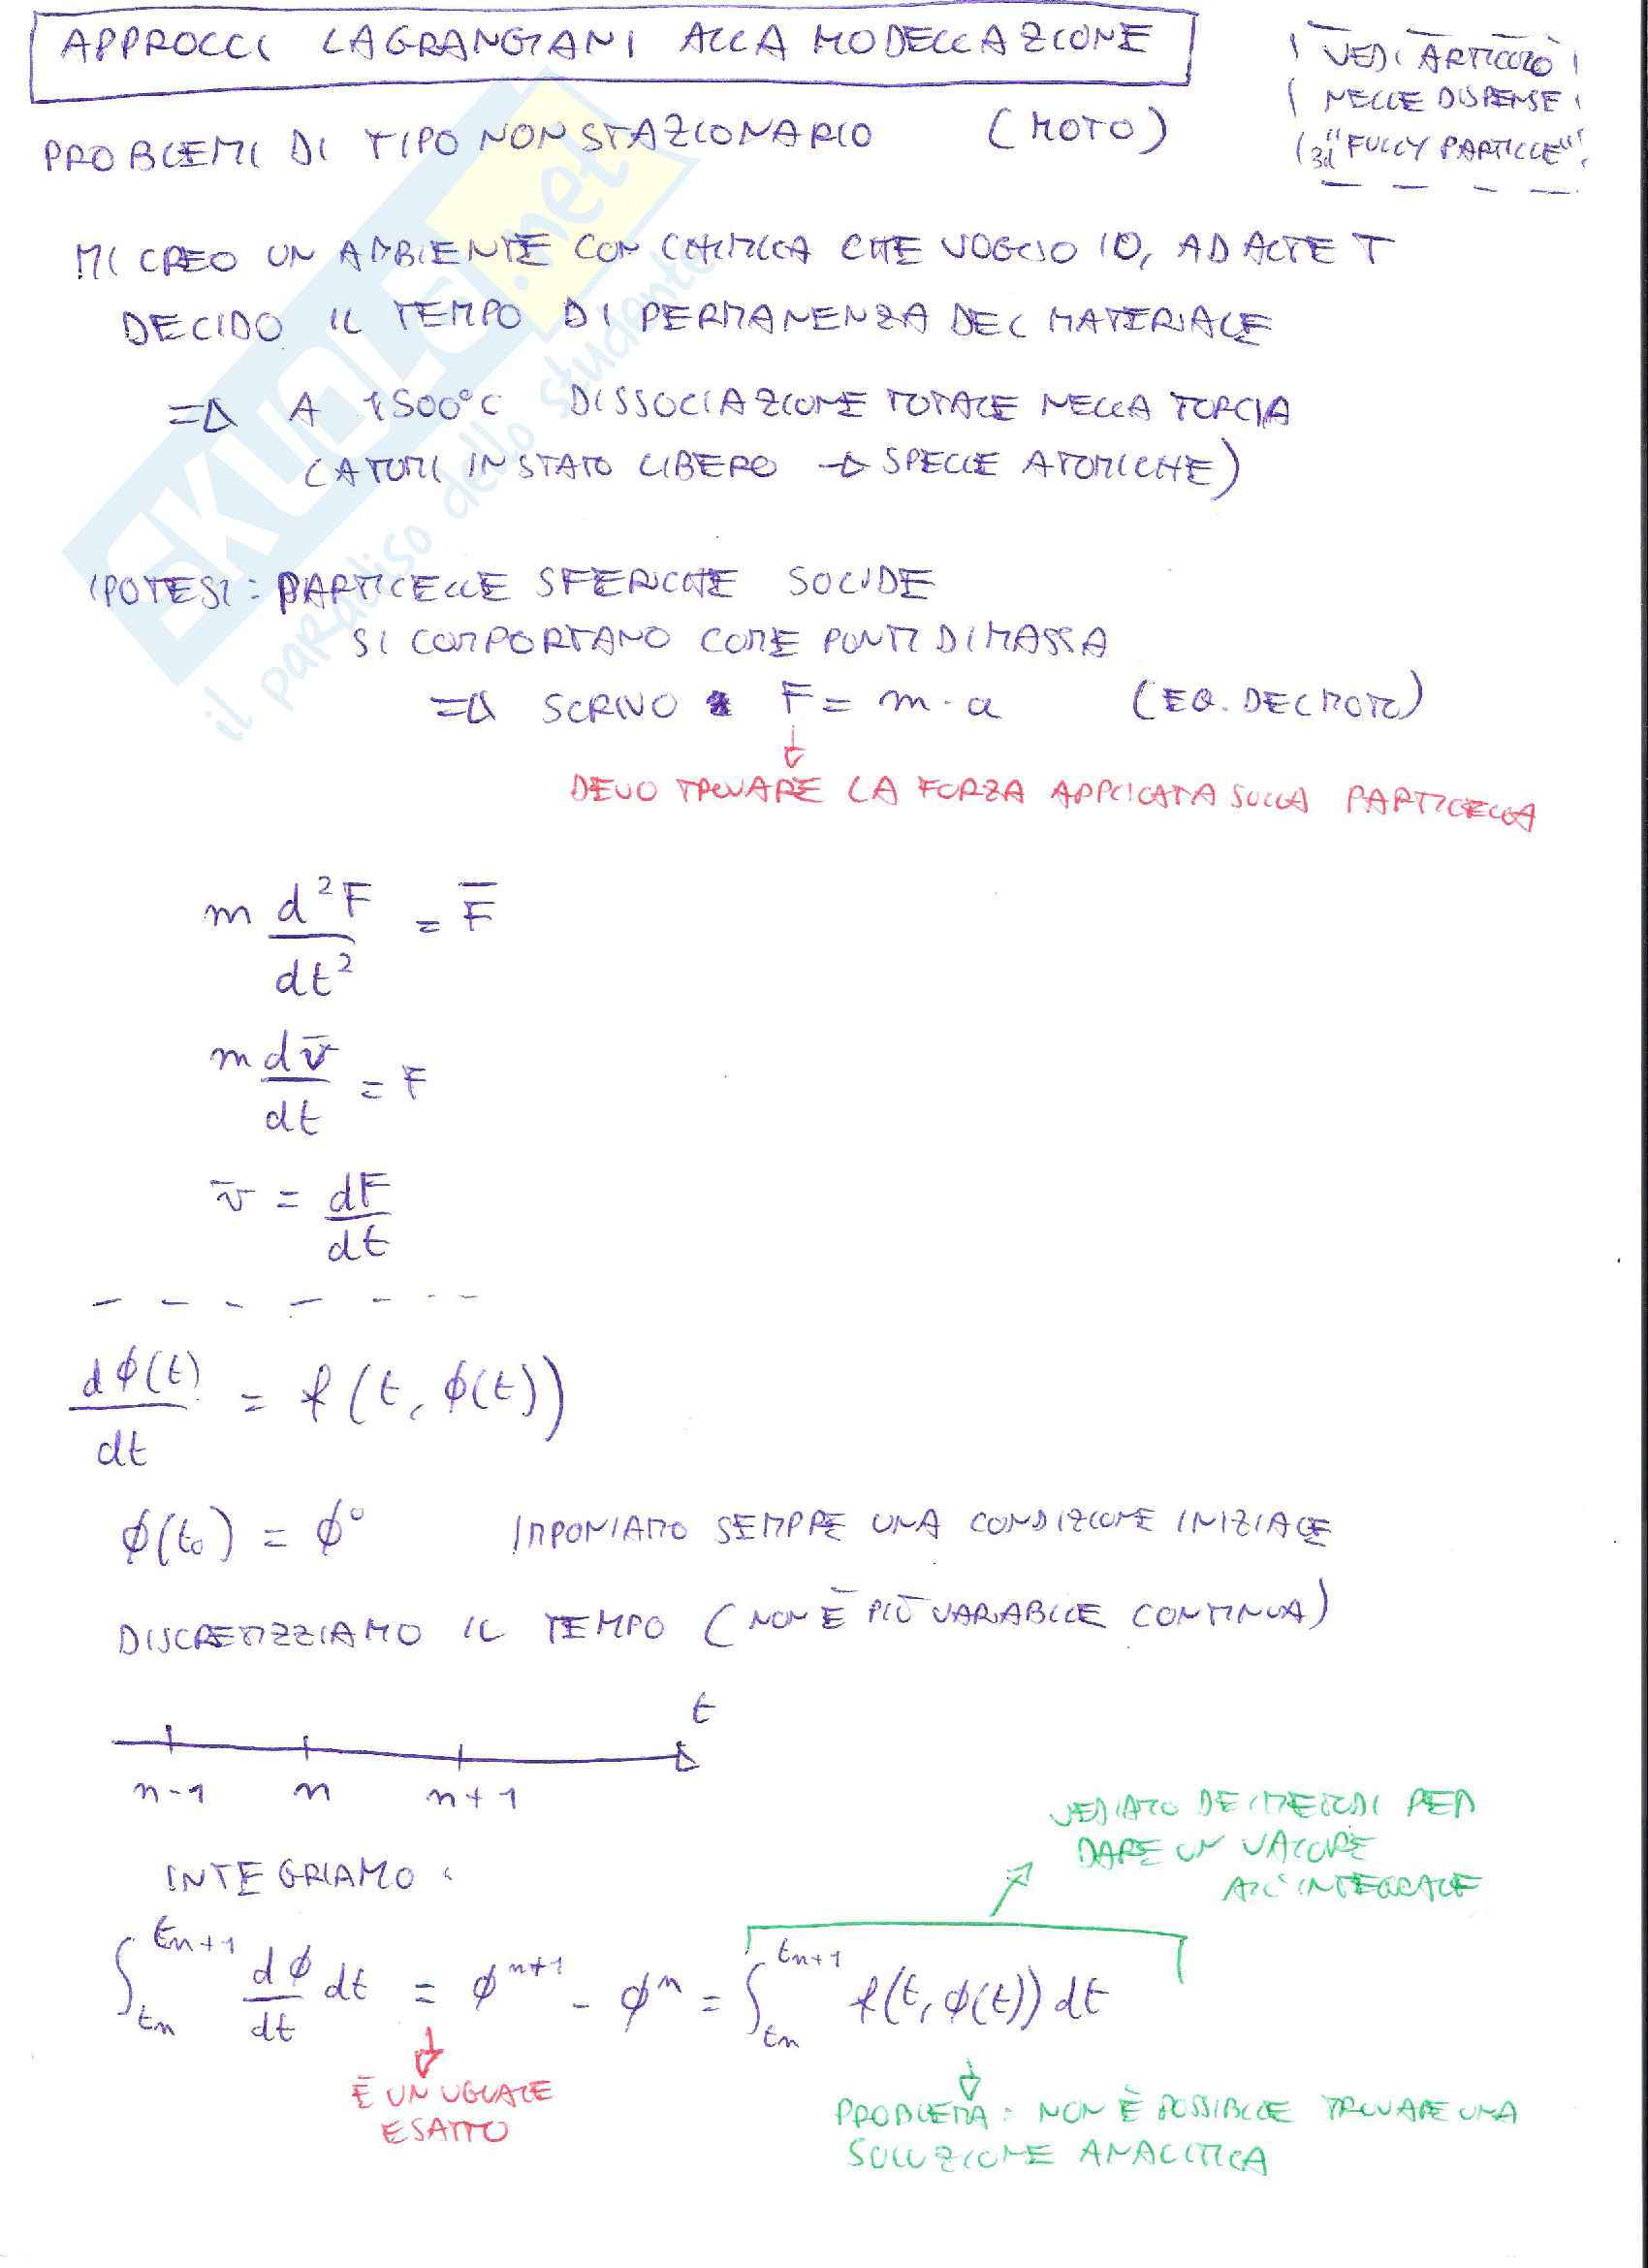 APPROCCI LAGRANGIANI ALLA MODELLAZIONE
VEDI ARTICOLO
NELLE DISPENSE
3d "FULLY PARTICLE"
PROBLEMI DI TIPO NON STAZIONARIO (MOTO)
MI CREO UN AMBIENTE CON CHIMICA CHE VOGLIO IO, AD ALTE T
DECIDO IL TEMPO DI PERMANENZA DEL MATERIALE
=> A 1500°C DISSOCIAZIONE TOTALE NELLA TORCIA
(ATOMI IN STATO LIBERO → SPECIE ATOMICHE)
IPOTESI: PARTICELLE SFERICHE SOLIDE
SI COMPORTANO COME PUNTI DI MASSA
=> SCRIVO F = m · a (EQ. DEL MOTO)
DEVO TROVARE LA FORZA APPLICATA SULLA PARTICELLA
m d²F/dt² = F̄
m dv̄/dt = F
v̄ = dF/dt
dϕ(t)/dt = f(t, ϕ(t))
ϕ(t₀) = ϕ° IMPONIAMO SEMPRE UNA CONDIZIONE INIZIALE
DISCRETIZZIAMO IL TEMPO (NON È PIÙ VARIABILE CONTINUA)
t
n-1 n n+1
VEDIAMO DEI METODI PER
DARE UN VALORE
ALL'INTEGRALE
INTEGRIAMO:
∫_{tn}^{tn+1} dϕ/dt dt = ϕ^{n+1} - ϕ^n = ∫_{tn}^{tn+1} f(t, ϕ(t)) dt
È UN UGUALE
ESATTO
PROBLEMA: NON È POSSIBILE TROVARE UNA
SOLUZIONE ANALITICA
SKUOLA.net
il paradiso dello studente